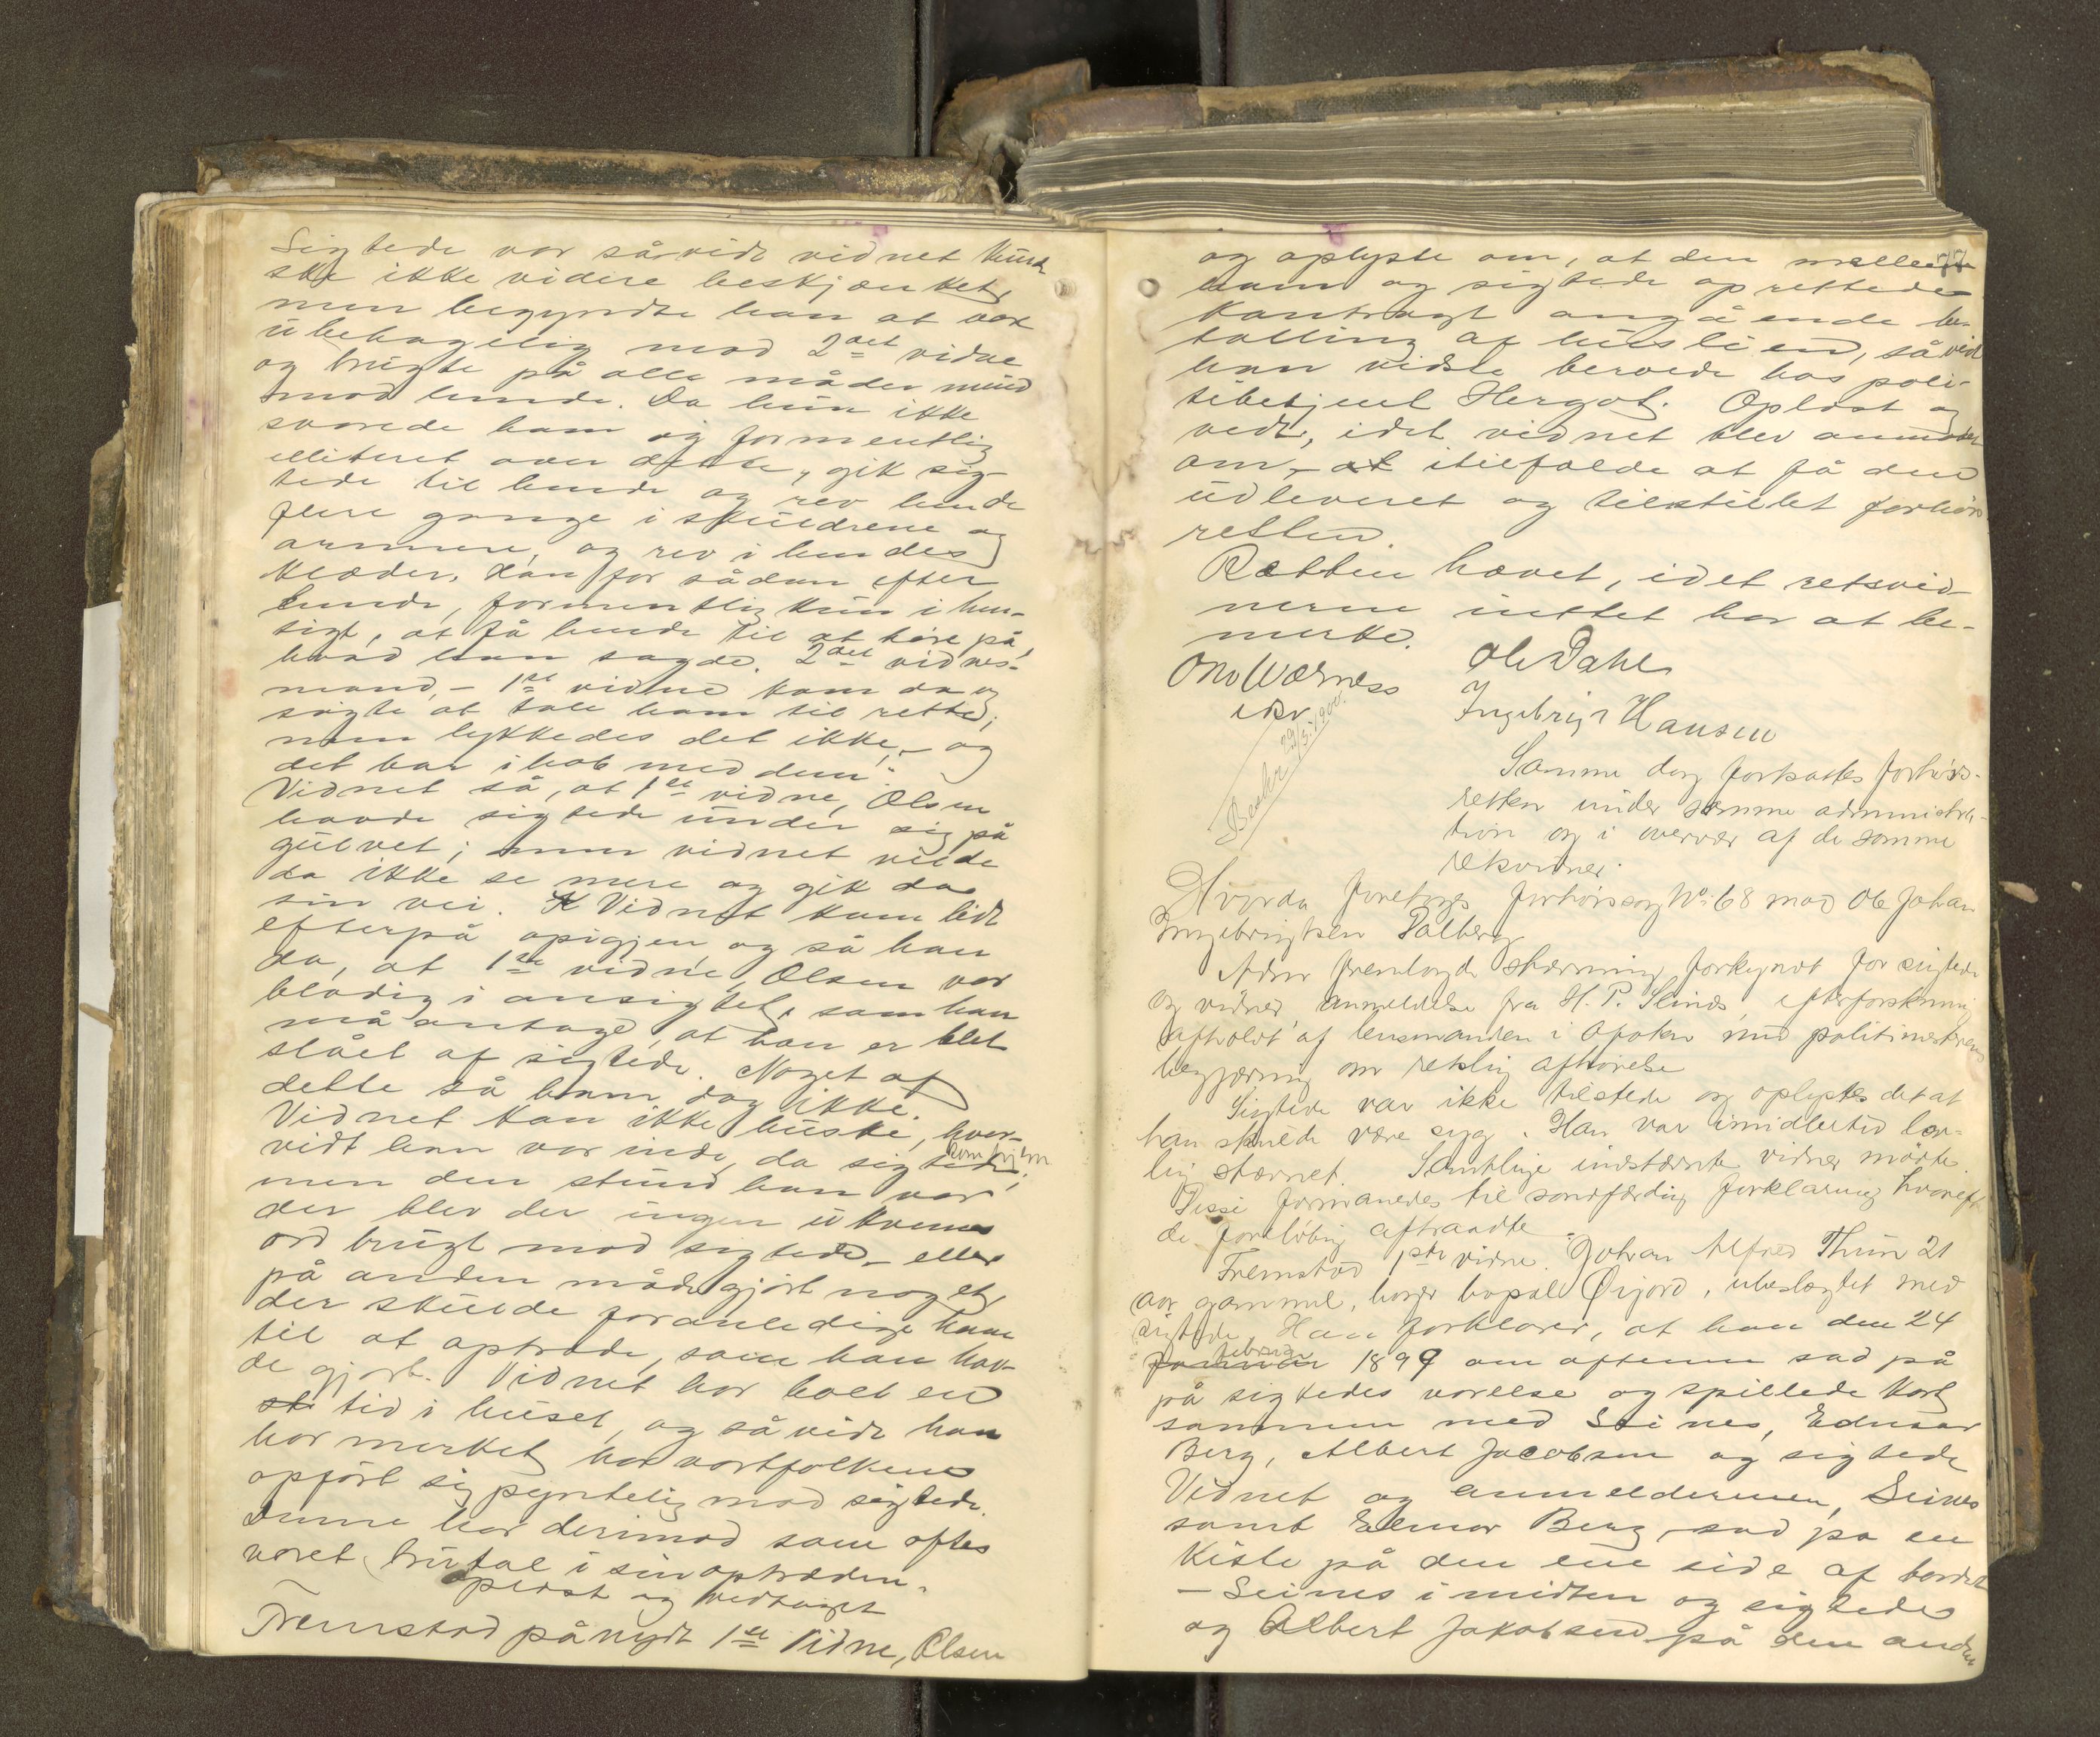 Sigtede var såvidt vidnet kunde
ske ikke videre beskjænket,
men begyndte han at være
ubehagelig mod 2det vidne
og brugte på alle måder mund
mod hende. Da hun ikke
svarede ham og formentlig
over dette, gik sig-
tede til hende og rev hende
flere gange i skuldrene og
armene, og rev i hendes
klæder. Han for sådan efter
hende, formentlig kun i hen-
sigt, at få hende til at høre på,
hvad han sagde. 2det vidnes
mand, - 1ste vidne kom da og
søgte at tale ham til rette;
men lykkedes det ikke, - og
det bar ihob med dem.
Vidnet så, at 1ste vidne, Olsen
havde sigtede under sig på
gulvet; men vidnet vilde
da ikke se mere og gik da
sin vei. Vidnet kom lidt
efterpå opigjen og så han
da, at 1ste vidne, Olsen var
blodig i ansigtet, som han
må antage, at han er blet
slået af sigtede. Noget af
dette så ham dog ikke.
Vidnet kan ikke huske, hvor-
vidt han var inde, da sigtede kom hjem,
men den stund han var
der blev der ingen ukvems
ord brugt mod sigtede, - eller
på anden måde gjort noget,
der skulde foranledige ham
til at optræde, som han hav-
de gjort. Vidnet har boet en
tid i huset, og såvidt han
har merket har vertfolkene
opført sig pyntelig mod sigtede.
Denne har derimod som oftes
været brutal i sin optræden.
Oplæst og vedtaget
Fremstod pånydt 1ste Vidne, Olsen
77
og oplyste om, at den mellem
ham og sigtede oprettede
Kontragt angående be-
talling af huslien, såvidt
han vidste beroede hos poli-
tibetjent Hergot. Oplæst og
vedt., idet vidnet blev anmodet
om, - at itilfælde at få den
udleveret og tilstillet forhørs
retten.
Retten hævet, idet retsvid-
nerne inttet har at be-
merke.
Ole Dahl
Ingebrigt Hansen
29/5. 1900.
Samme dag fortsattes forhørs-
retten under samme administra-
tion og i overvær af de samme
retsvidner.
Hvorda foretoges forhørssag No. 68 mod Ole Johan
Ingebrigtsen Palberg
Adm fremlagde stævning forkyndt for sigtede
og vidner, anmeldelse fra H. P. Seines, efterforskning
afholdt af lensmanden i Ofoten med politimesterens
begjæring om retslig afhørelse
Sigtede var ikke tilstede og oplystes det at
han skulde være syg. Han var imidlertid lov-
lig stævnet. Samtlige indstævnte vidner mødte.
Disse formanedes til sandfærdig forklaring hvorefter
de foreløbig aftraadte.
Fremstod 1ste vidne. Johan Alfred Thun 21
aar gammel, bopæl Øijord, ubeslægtet med
sigtede. Han forklarer, at han den 24
februar 1899 om aftenen sad på
på sigtedes værelse og spillede Kort
sammen med Seines, Edvard
Berg, Albert Jacobsen og sigtede
Vidnet og anmelderen, Seines
samt Berg sad på en
Kiste på den ene side af bordet
- Seines i midten og sigtedes
og Albert Jakobsen på den anden